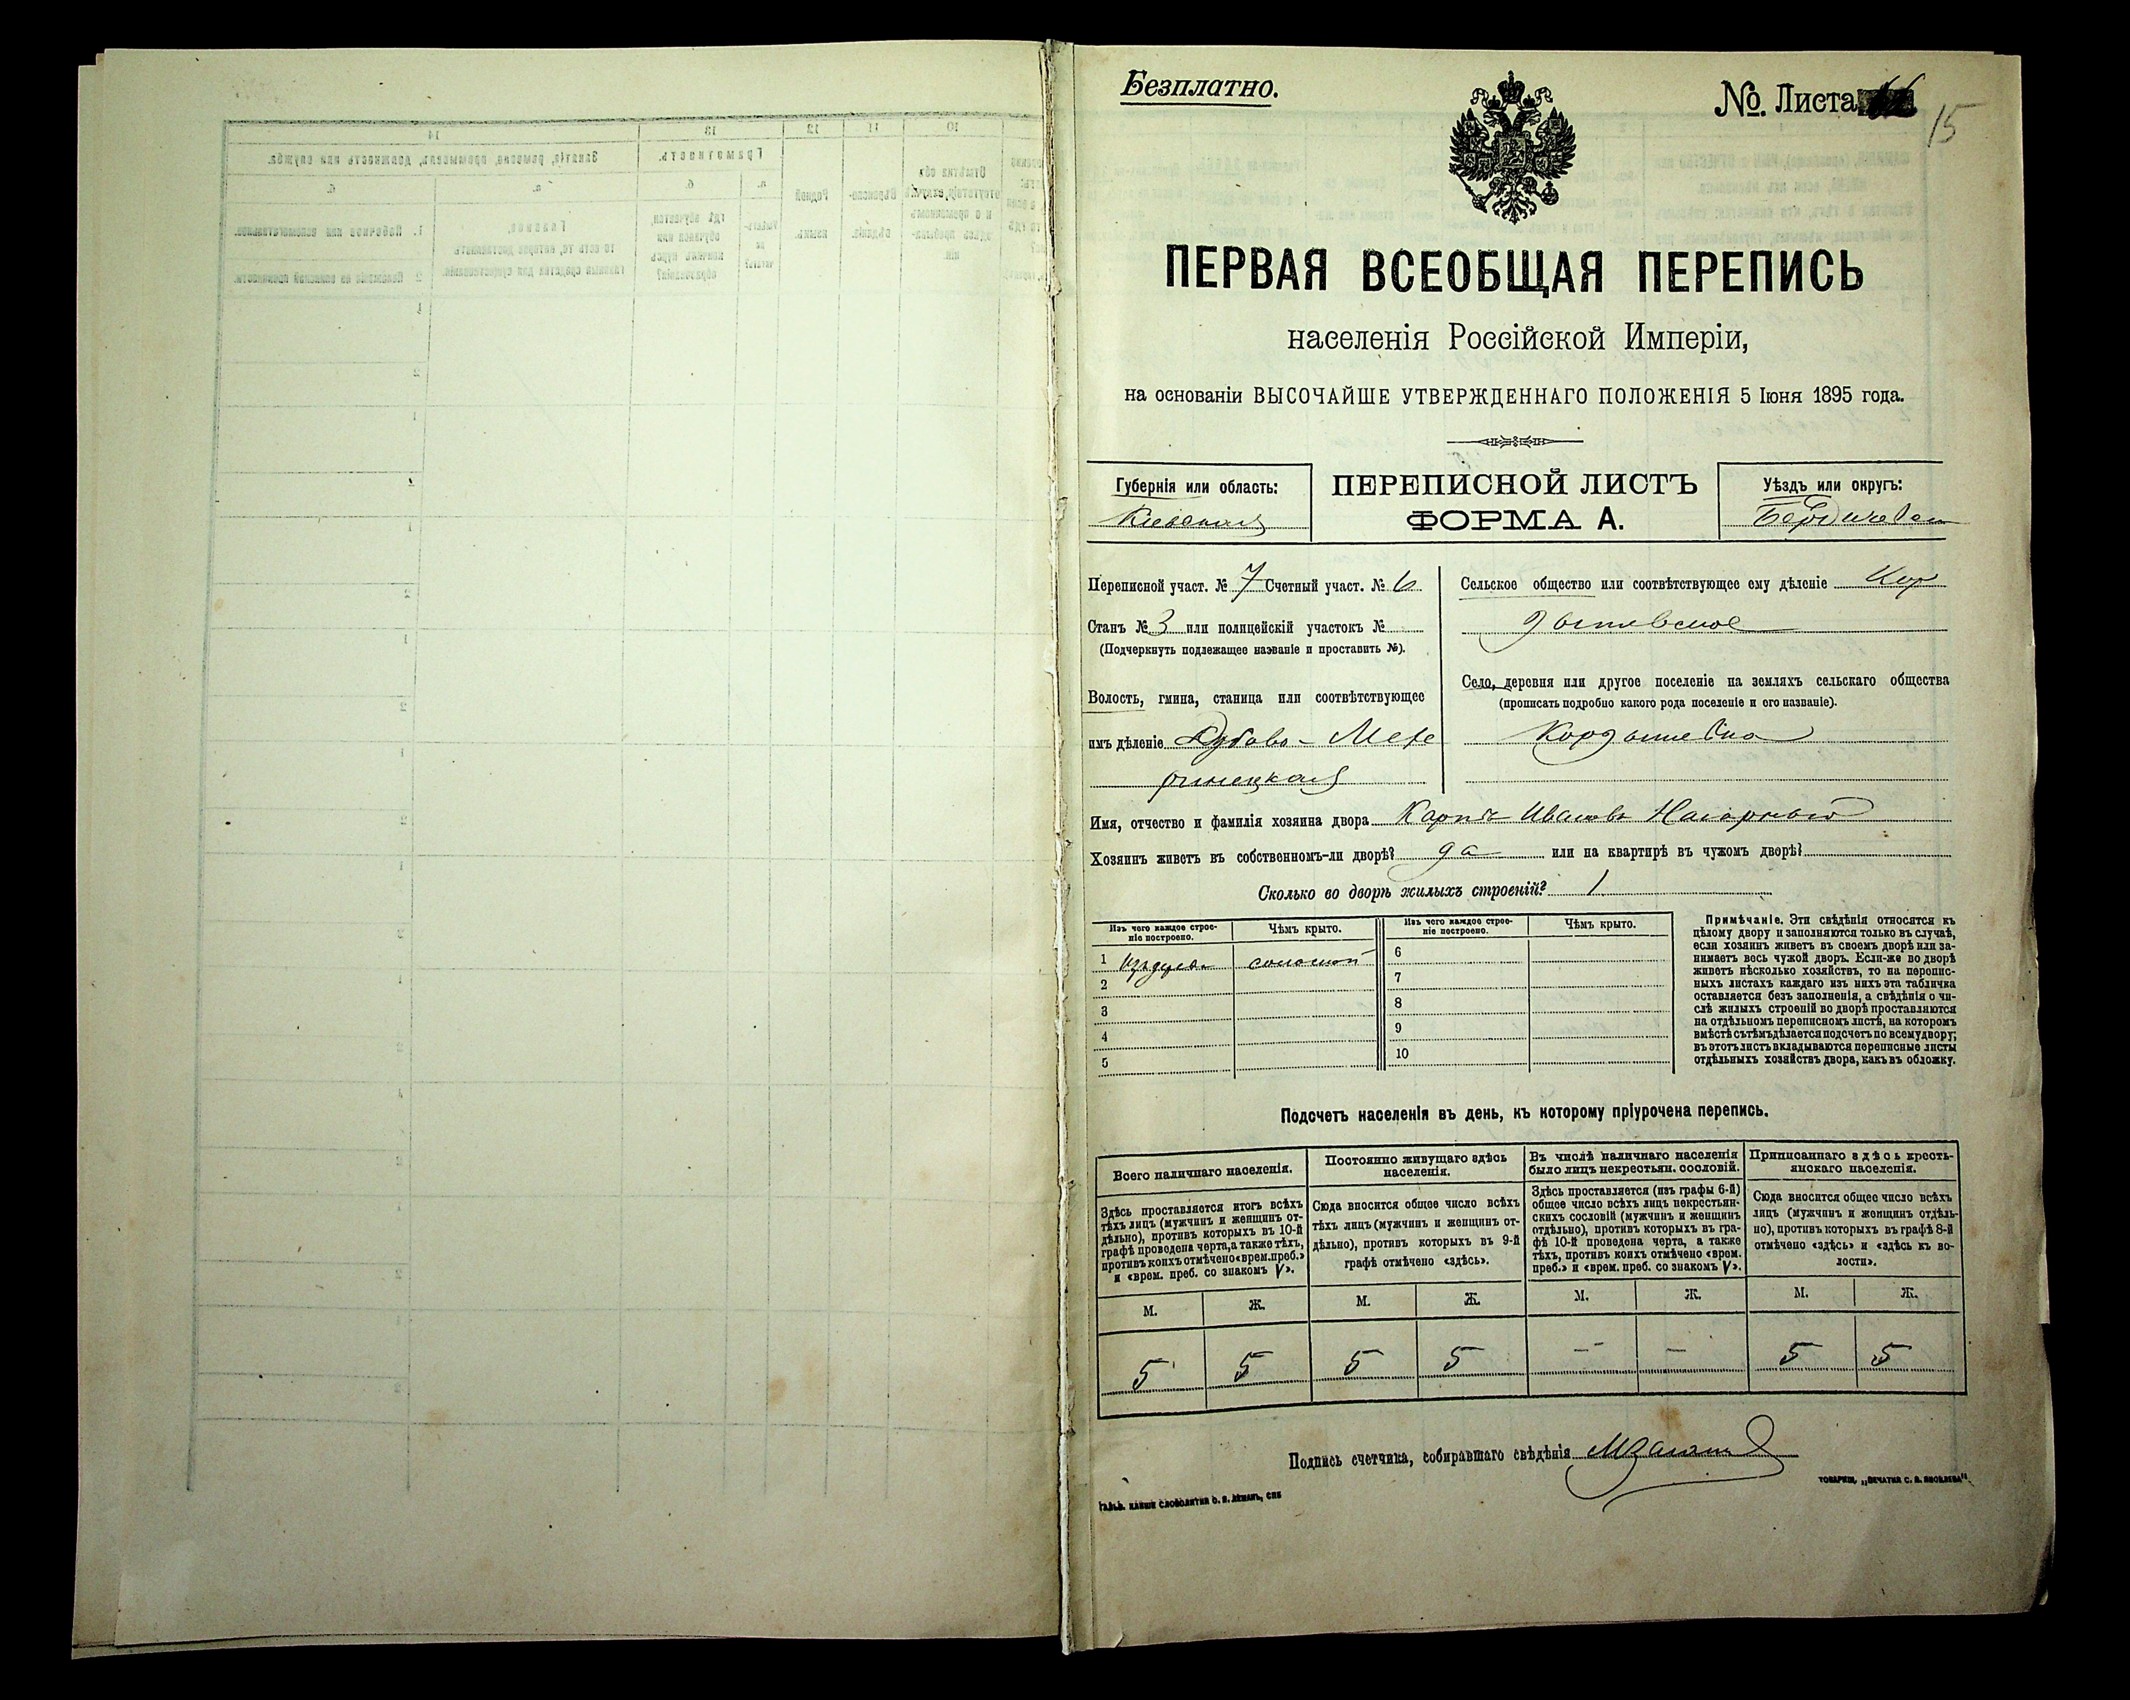 Безплатно.
№. Листа
15
ПЕРВАЯ ВСЕОБЩАЯ ПЕРЕПИСЬ
населенія Россійской Имперіи,
на основаніи ВЫСОЧАЙШЕ УТВЕРЖДЕННАГО ПОЛОЖЕНІЯ 5 Іюня 1895 года.
Губернія или область:
Кіевская
ПЕРЕПИСНОЙ ЛИСТЪ
ФОРМА А.
Уѣздъ или округъ:
Бердичевск
Переписной участ. № 7 Счетный участ. № 6
Станъ № 3 или полицейскій участокъ №
(Подчеркнуть подлежащее названіе и проставить №).
Волость, гмина, станица или соотвѣтствующее
имъ дѣленіе Дубово-Махе
ринецкая
Сельское общество или соотвѣтствующее ему дѣленіе Кор
дышевское
Село, деревня или другое поселеніе на земляхъ сельскаго общества
(прописать подробно какого рода поселеніе и его названіе).
Кордышевка
Имя, отчество и фамилія хозяина двора Карпъ Ивановъ Нагорный
Хозяинъ живетъ въ собственномъ-ли дворѣ? да или на квартирѣ въ чужомъ дворѣ?
Сколько во дворѣ жилыхъ строеній? 1
Изъ чего каждое строе-
ніе построено.
Чѣмъ крыто.
Изъ чего каждое строе-
ніе построено.
Чѣмъ крыто.
1 соломой 6
2 7
3 8
4 9
5 10
Примѣчаніе. Эти свѣдѣнія относятся къ
цѣлому двору и заполняются только въ случаѣ,
если хозяинъ живетъ въ своемъ дворѣ или за-
нимаетъ весь чужой дворъ. Если-же во дворѣ
живетъ нѣсколько хозяйствъ, то на перепис-
ныхъ листахъ каждаго изъ нихъ эта табличка
оставляется безъ заполненія, а свѣдѣнія о чи-
слѣ жилыхъ строеній во дворѣ проставляются
на отдѣльномъ переписномъ листѣ, на которомъ
вмѣстѣ съ тѣмъ дѣлается подсчетъ по всему двору;
въ этотъ листъ вкладываются переписные листы
отдѣльныхъ хозяйствъ двора, какъ въ обложку.
Подсчетъ населенія въ день, къ которому пріурочена перепись.
Всего наличнаго населенія.
Здѣсь проставляется итогъ всѣхъ
тѣхъ лицъ (мужчинъ и женщинъ от-
дѣльно), противъ которыхъ въ 10-й
графѣ проведена черта, а также тѣхъ,
противъ коихъ отмѣчено «врем. преб.»
и «врем. преб. со знакомъ V».
Постоянно живущаго здѣсь
населенія.
Сюда вносится общее число всѣхъ
тѣхъ лицъ (мужчинъ и женщинъ от-
дѣльно), противъ которыхъ въ 9-й
графѣ отмѣчено «здѣсь».
Въ числѣ наличнаго населенія
было лицъ некрестьян. сословій.
Здѣсь проставляется (изъ графы 6-й)
общее число всѣхъ лицъ некрестьян-
скихъ сословій (мужчинъ и женщинъ
отдѣльно), противъ которыхъ въ гра-
фѣ 10-й проведена черта, а также
тѣхъ, противъ коихъ отмѣчено «врем.
преб.» и «врем. преб. со знакомъ V».
Приписаннаго здѣсь кресть-
янскаго населенія.
Сюда вносится общее число всѣхъ
лицъ (мужчинъ и женщинъ отдѣль-
но), противъ которыхъ въ графѣ 8-й
отмѣчено «здѣсь» и «здѣсь къ во-
лости».
М. Ж. М. Ж. М. Ж. М. Ж.
5 5 5 5 — — 5 5
Подпись счетчика, собиравшаго свѣдѣнія